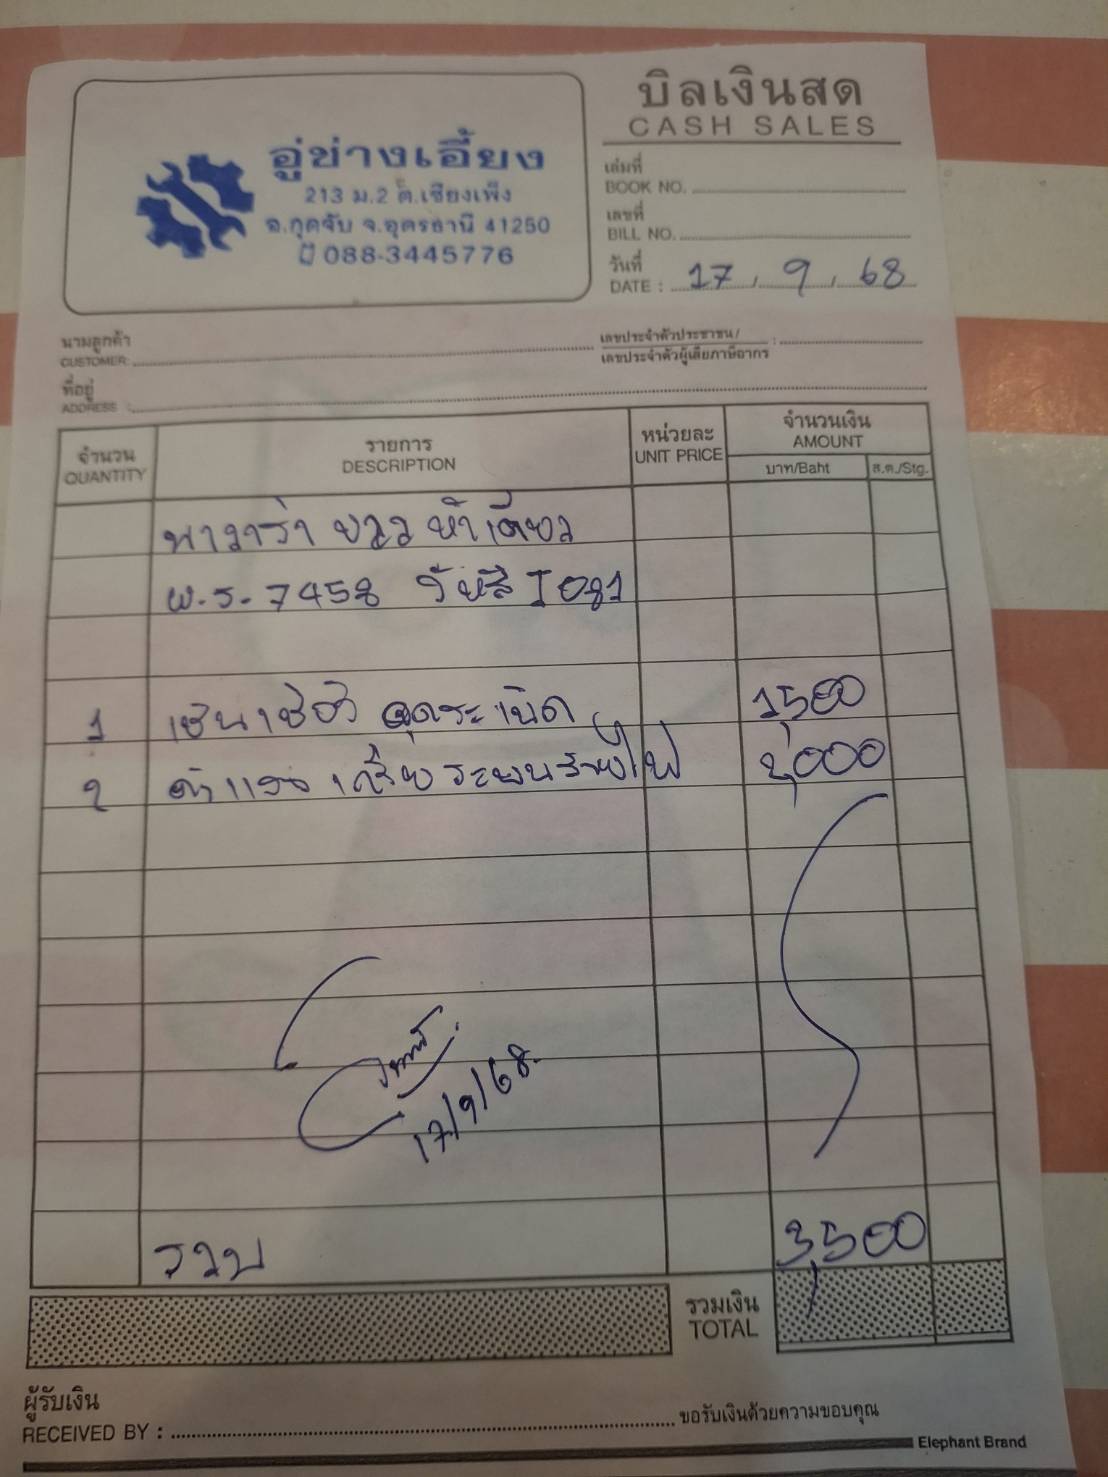 บิลเงินสด
CASH SALES
อู่ช่างเอี้ยง
213 ม.2 ต.เชียงเพ็ง
อ.กุดจับ จ.อุดรธานี 41250
088-3445776
เล่มที่
BOOK NO.
เลขที่
BILL NO.
วันที่
DATE : 17 / 9 / 68
นามลูกค้า
CUSTOMER
เลขประจำตัวประชาชน/
เลขประจำตัวผู้เสียภาษีอากร
ที่อยู่
ADDRESS
จำนวน
QUANTITY
รายการ
DESCRIPTION
หน่วยละ
UNIT PRICE
จำนวนเงิน
AMOUNT
บาท/Baht
ส.ต./Stg.
นาวาร่า
7458 รหัส I 081
1 จุดระเบิด 1,500
2 ค่าแรง ระบบสายไฟ 2,000
17/9/68
รวม 3,500
รวมเงิน
TOTAL
ผู้รับเงิน
RECEIVED BY :
ขอรับเงินด้วยความขอบคุณ
Elephant Brand